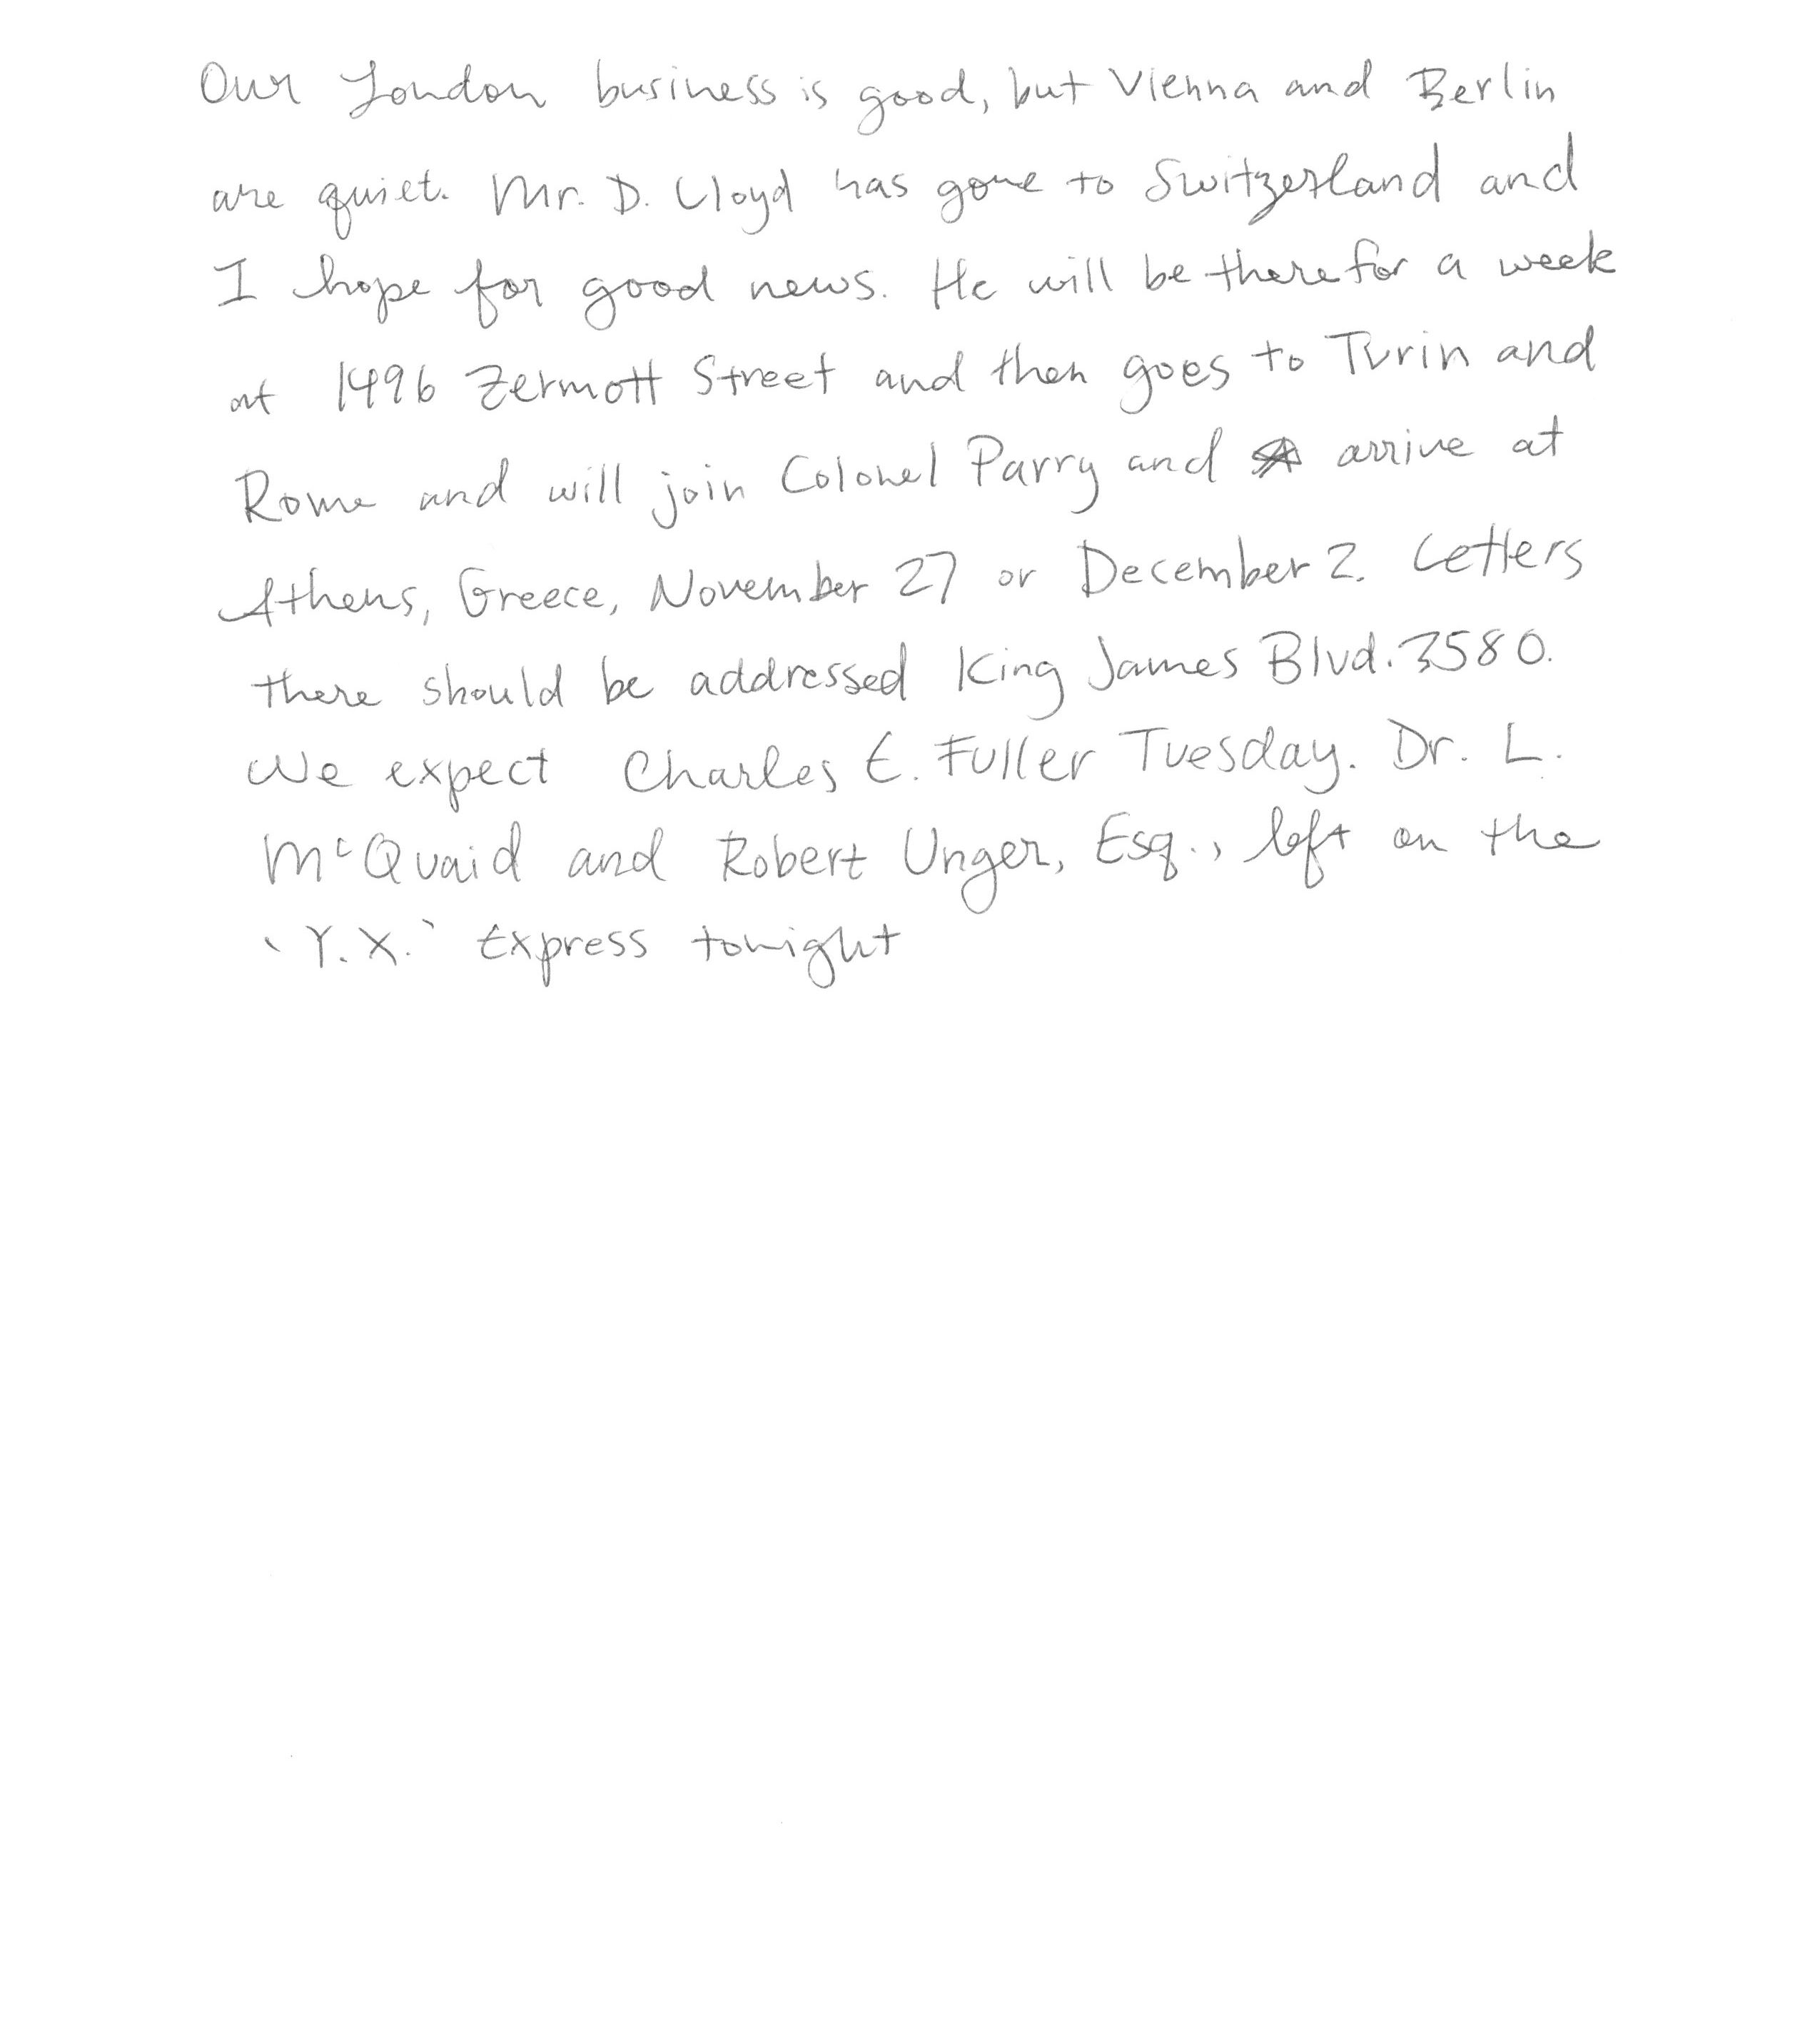 Our London business is good, but Vienna and Berlin
are quiet. Mr. D. Lloyd has gone to Switzerland and
I hope for good news. He will be there for a week
at 1496 Zermott Street and then goes to Turin and
Rome and will join Colonel Parry and arrive at
Athens, Greece, November 27 or December 2. Letters
there should be addressed King James Blvd. 3580.
We expect Charles E. Fuller Tuesday. Dr. L.
McQuaid and Robert Unger, Esq., left on the
'Y.X.' Express tonight